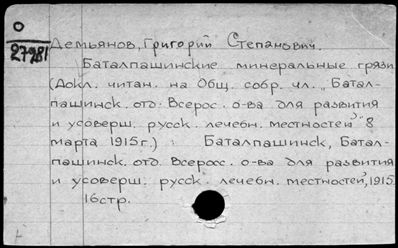 О
27981
Демьянов, Григорий Степанович.
Баталпашинские минеральные грязи
(Докл. читан. на Общ. собр. чл. „Батал-
пашинск. отд. Всерос. о-ва для развития
и усоверш. русск. лечебн. местностей" 8
марта 1915г.) Баталпашинск, Батал-
пашинск. отд. Всеросс. о-ва для развития
и усоверш. русск. лечебн. местностей, 1915.
16стр.